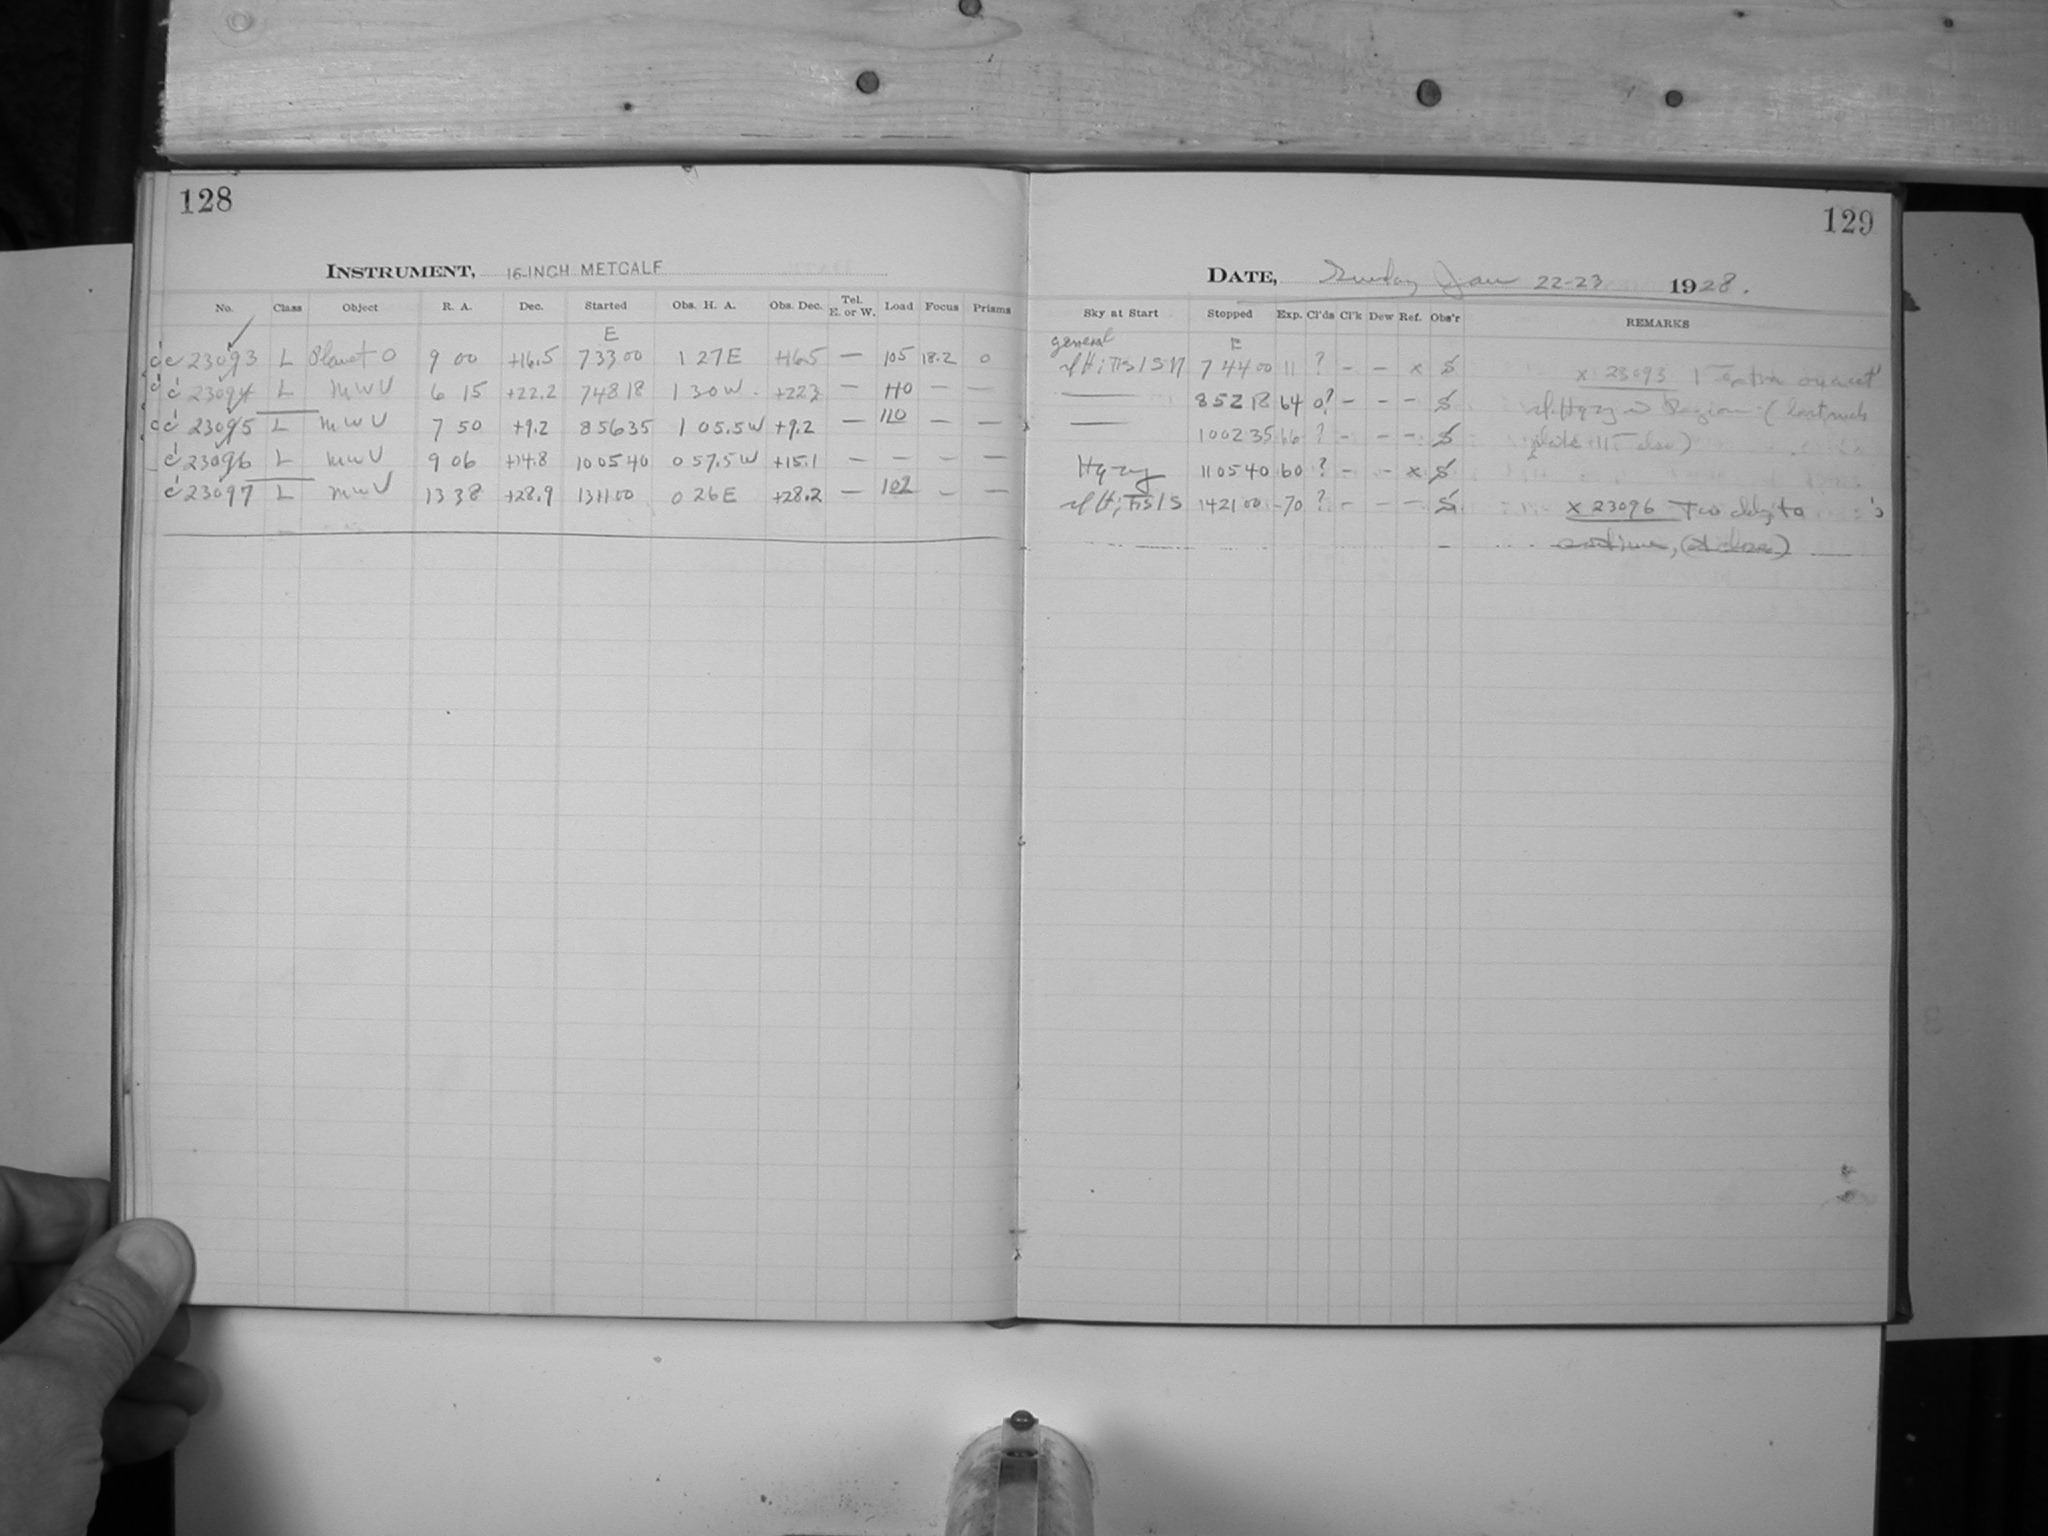 128
INSTRUMENT, 16-INCH METCALF
No. Class Object R. A. Dec. Started Obs. H. A. Obs. Dec. Tel. E. or W. Load Focus Prisms
E
c c 23093 L Planet O 9 00 +16.5 7 33 00 1 27 E +16.5 — 105 18.2 0
c c 23094 L MWU 6 15 +22.2 7 48 18 1 30 W +22.3 — 110 — —
c c 23095 L MWU 7 50 +9.2 8 56 35 1 05.5 W +9.2 — 110 — —
c 23096 L MWU 9 06 +14.8 10 05 40 0 57.5 W +15.1 — — — —
c 23097 L MWU 13 38 +28.9 13 11 00 0 26 E +28.2 — 102 — —
129
DATE, Sunday Jan 22-23 1928.
Sky at Start Stopped Exp. Cl'ds Cl'k Dew Ref. Obs'r REMARKS
general E
7 44 00 11 ? — — x S x 23093 1
— 8 52 18 64 0? — — — S Hazy Region (last
— 10 02 35 66 ? — — — S plate also)
Hazy 11 05 40 60 ? — — x S
14 21 00 70 ? — — — S x 23096 Two